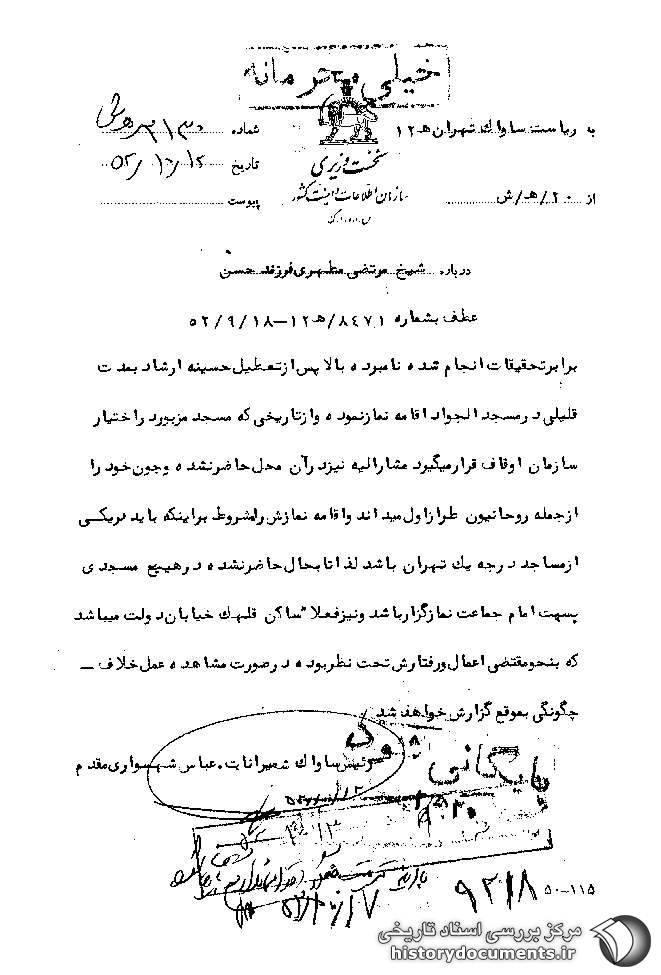 خیلی محرمانه
به ریاست ساواک تهران ه‍ ۱۲
شماره
نخست وزیری
تاریخ ۵۲/۱۰/۱۲
سازمان اطلاعات و امنیت کشور
از ۲۰/ه‍/ش
پیوست
س.ا.و.ا.ک
درباره شیخ مرتضی مطهری فرزند حسن
عطف بشماره ۸۴۷۱/ه‍ ۱۲-۵۲/۹/۱۸
برابر تحقیقات انجام شده نامبرده بالا پس از تعطیل حسینه ارشاد بمدت
قلیلی در مسجد الجواد اقامه نماز نموده و از تاریخی که مسجد مزبور در اختیار
سازمان اوقاف قرار میگیرد مشارالیه نیز در آن محل حاضر نشده و چون خود را
از جمله روحانیون طراز اول میداند و اقامه نمازش را مشروط بر اینکه باید در یکی
از مساجد درجه یک تهران باشد لذا تا بحال حاضر نشده در هیچ مسجدی
بسمت امام جماعت نمازگزار باشد و نیز فعلا" ساکن قلهک خیابان دولت میباشد
که بنحو مقتضی اعمال و رفتارش تحت نظر بوده در صورت مشاهده عمل خلاف –
چگونگی بموقع گزارش خواهد شد
رئیس ساواک شمیرانات. عباس شهسواری مقدم
بایگانی شود
۵۰-۱۱۵
مرکز بررسی اسناد تاریخی
historydocuments.ir